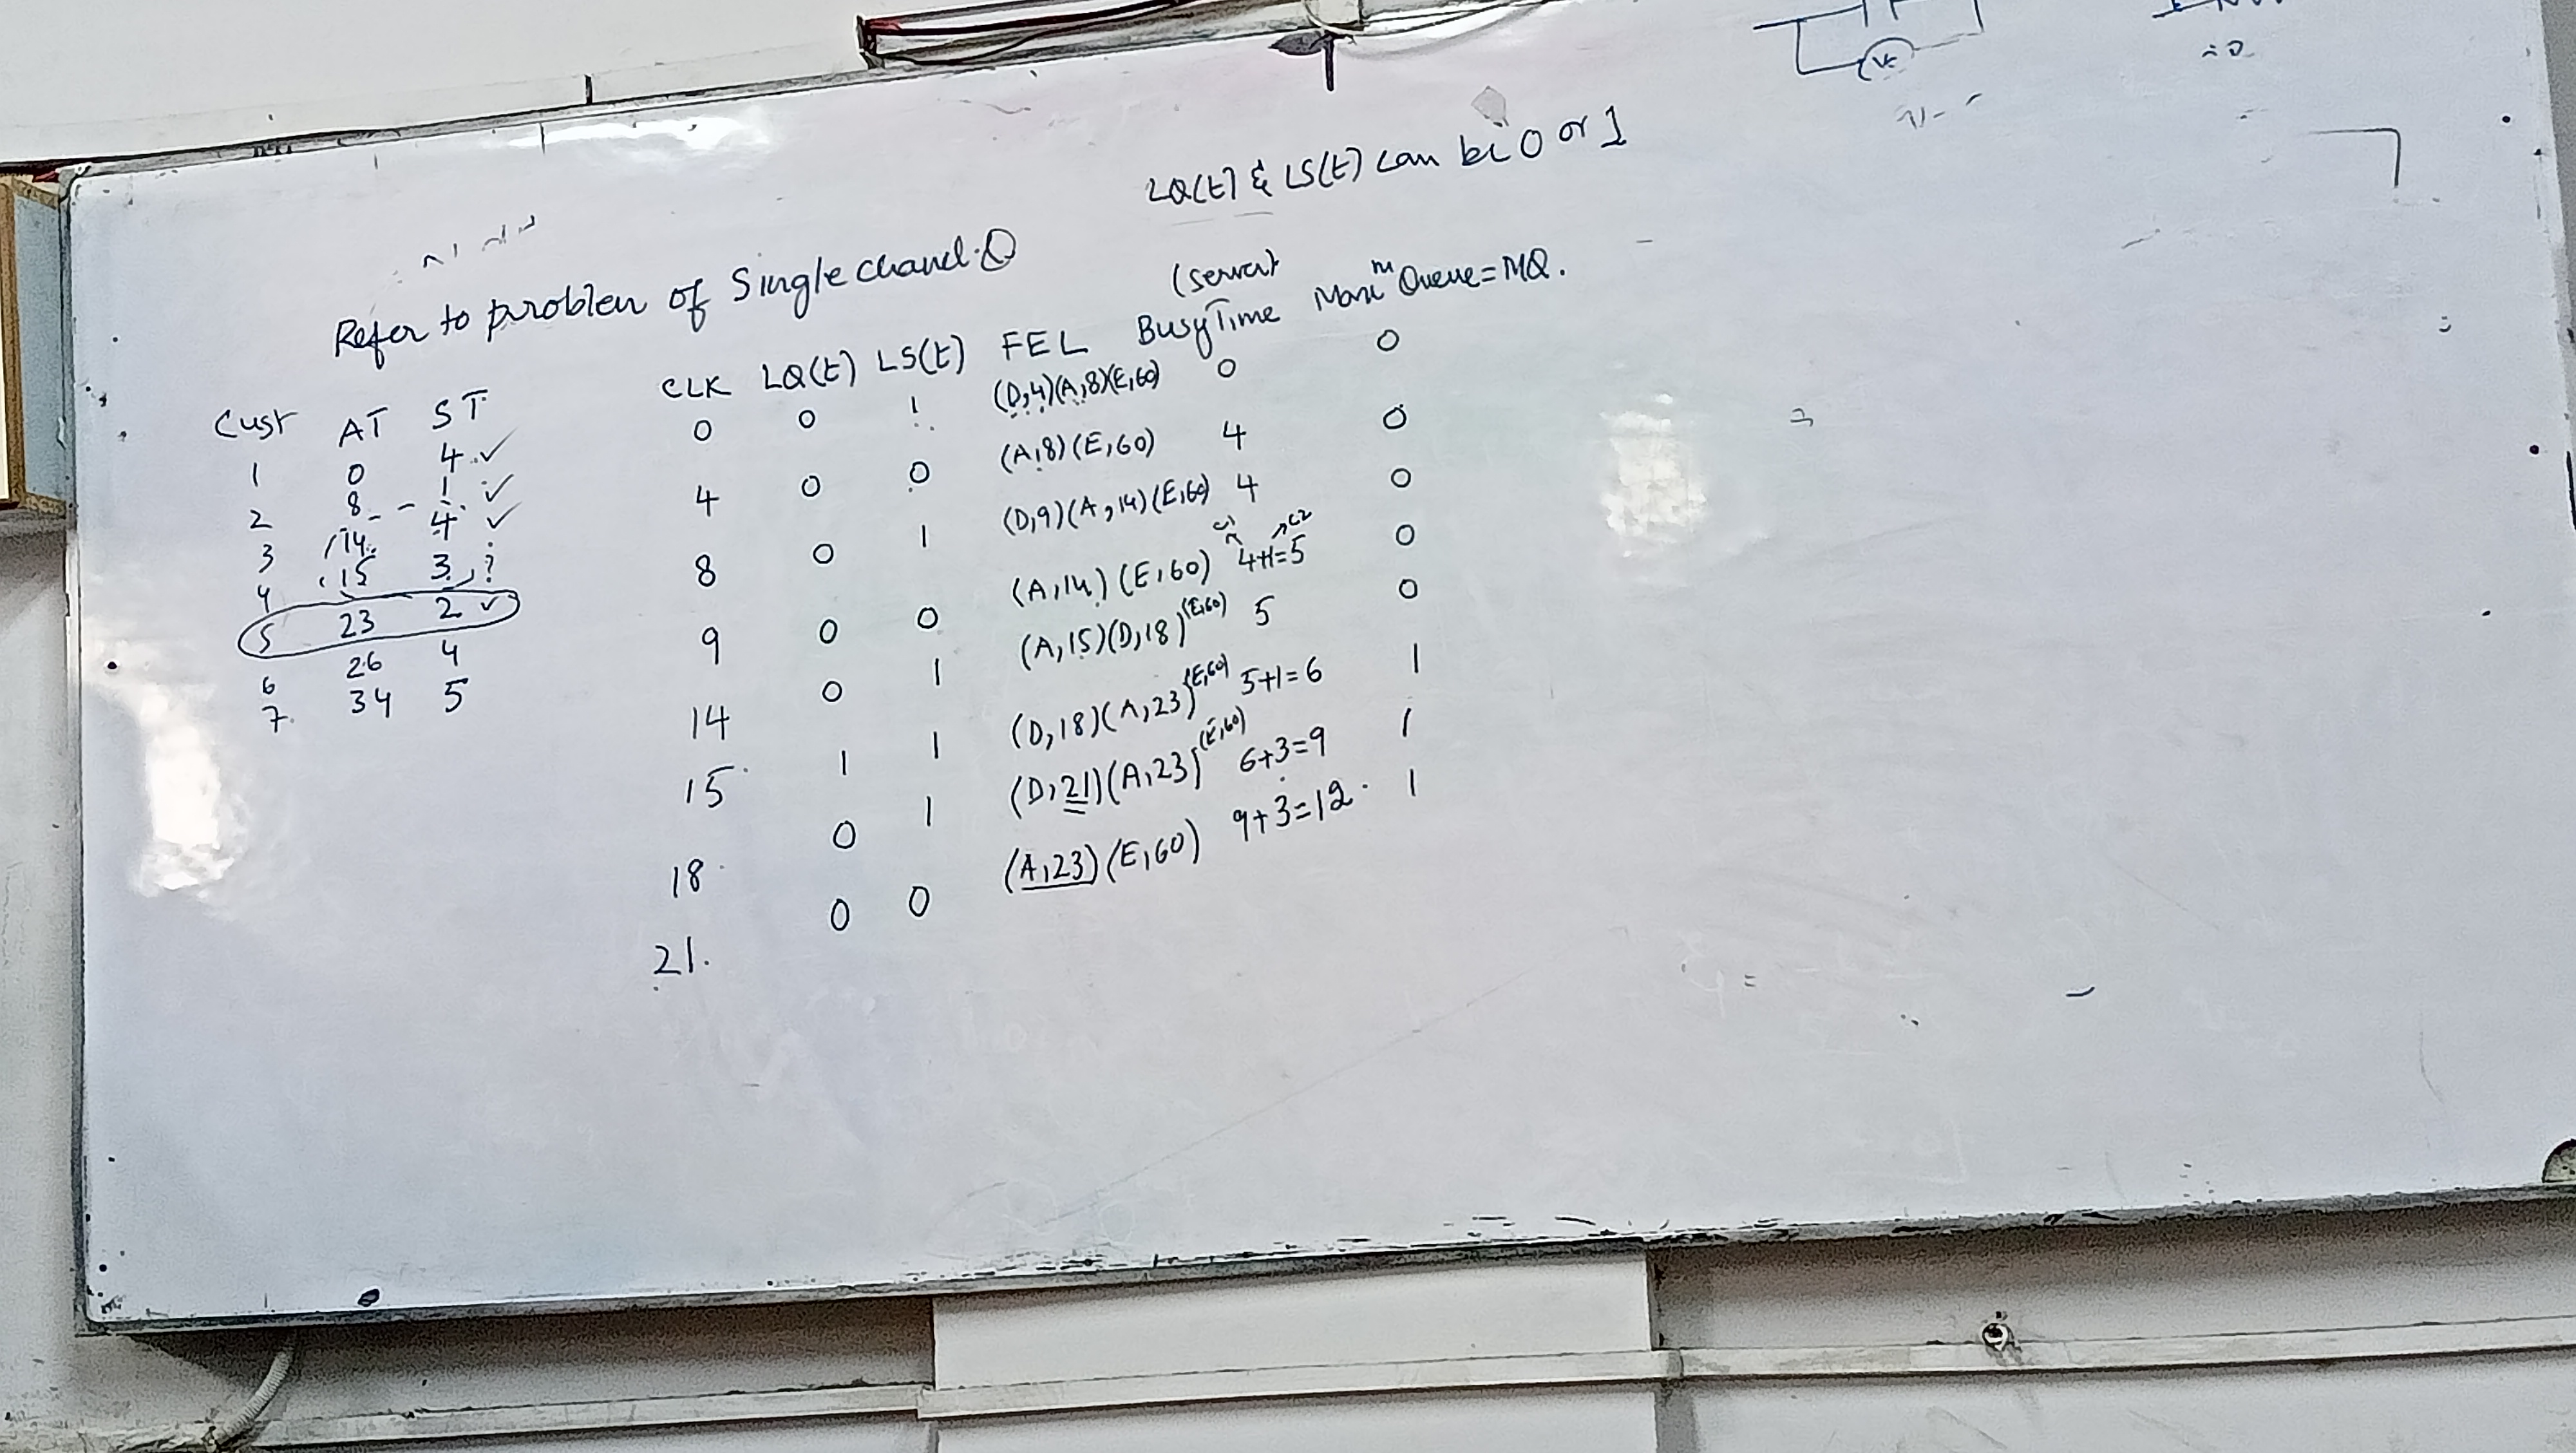 LQ(t) & LS(t) can be 0 or 1
Refer to problem of Single chanel Q
Cust AT ST
1 0 4 ✓
2 8 1 ✓
3 14 4 ✓
4 15 3 ?
5 23 2 ✓
6 26 4
7. 34 5
(server)
CLK LQ(t) LS(t) FEL Busy Time Maxi^m Queue = MQ.
0 0 1 (D,4)(A,8)(E,60) 0 0
4 0 0 (A,8)(E,60) 4 0
8 0 1 (D,9)(A,14)(E,60) 4 0
C1 C2
9 0 0 (A,14)(E,60) 4+1=5 0
14 0 1 (A,15)(D,18)(E,60) 5 0
15 1 1 (D,18)(A,23)(E,60) 5+1=6 1
18 0 1 (D,21)(A,23)(E,60) 6+3=9 1
21. 0 0 (A,23)(E,60) 9+3=12. 1